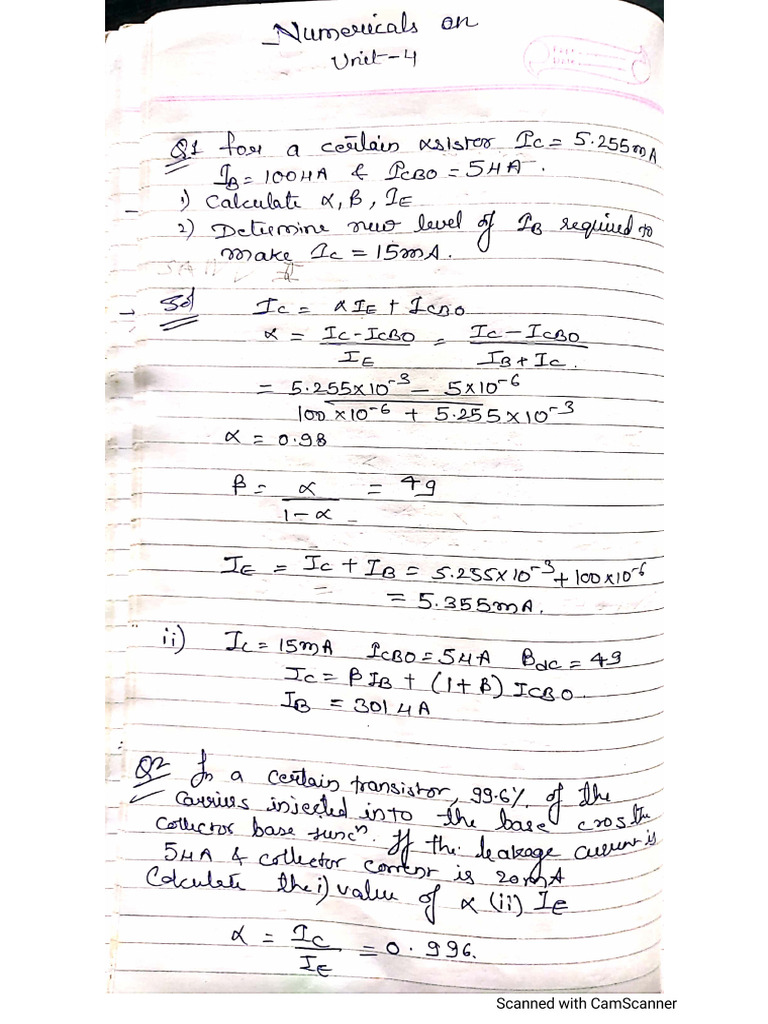 Numericals on
Unit-4
Q1 for a certain xsistor Ic = 5.255mA
IB = 100μA & ICBO = 5μA.
1) Calculate α, β, IE
2) Determine new level of IB required to
make Ic = 15mA.
Sol Ic = αIE + ICBO
α = Ic - ICBO / IE = Ic - ICBO / IB + Ic.
= 5.255×10⁻³ - 5×10⁻⁶ / 100×10⁻⁶ + 5.255×10⁻³
α = 0.98
β = α / 1-α = 49
IE = Ic + IB = 5.255×10⁻³ + 100×10⁻⁶
= 5.355mA.
ii) Ic = 15mA ICBO = 5μA Bdc = 49
Ic = βIB + (1+β) ICBO.
IB = 301μA
Q2 In a certain transistor, 99.6% of the
carriers injected into the base cros the
collector base juncⁿ. If the leakage current is
5μA & collector corrent is 20mA
Calculate the i) value of α (ii) IE
α = Ic / IE = 0.996.
Scanned with CamScanner